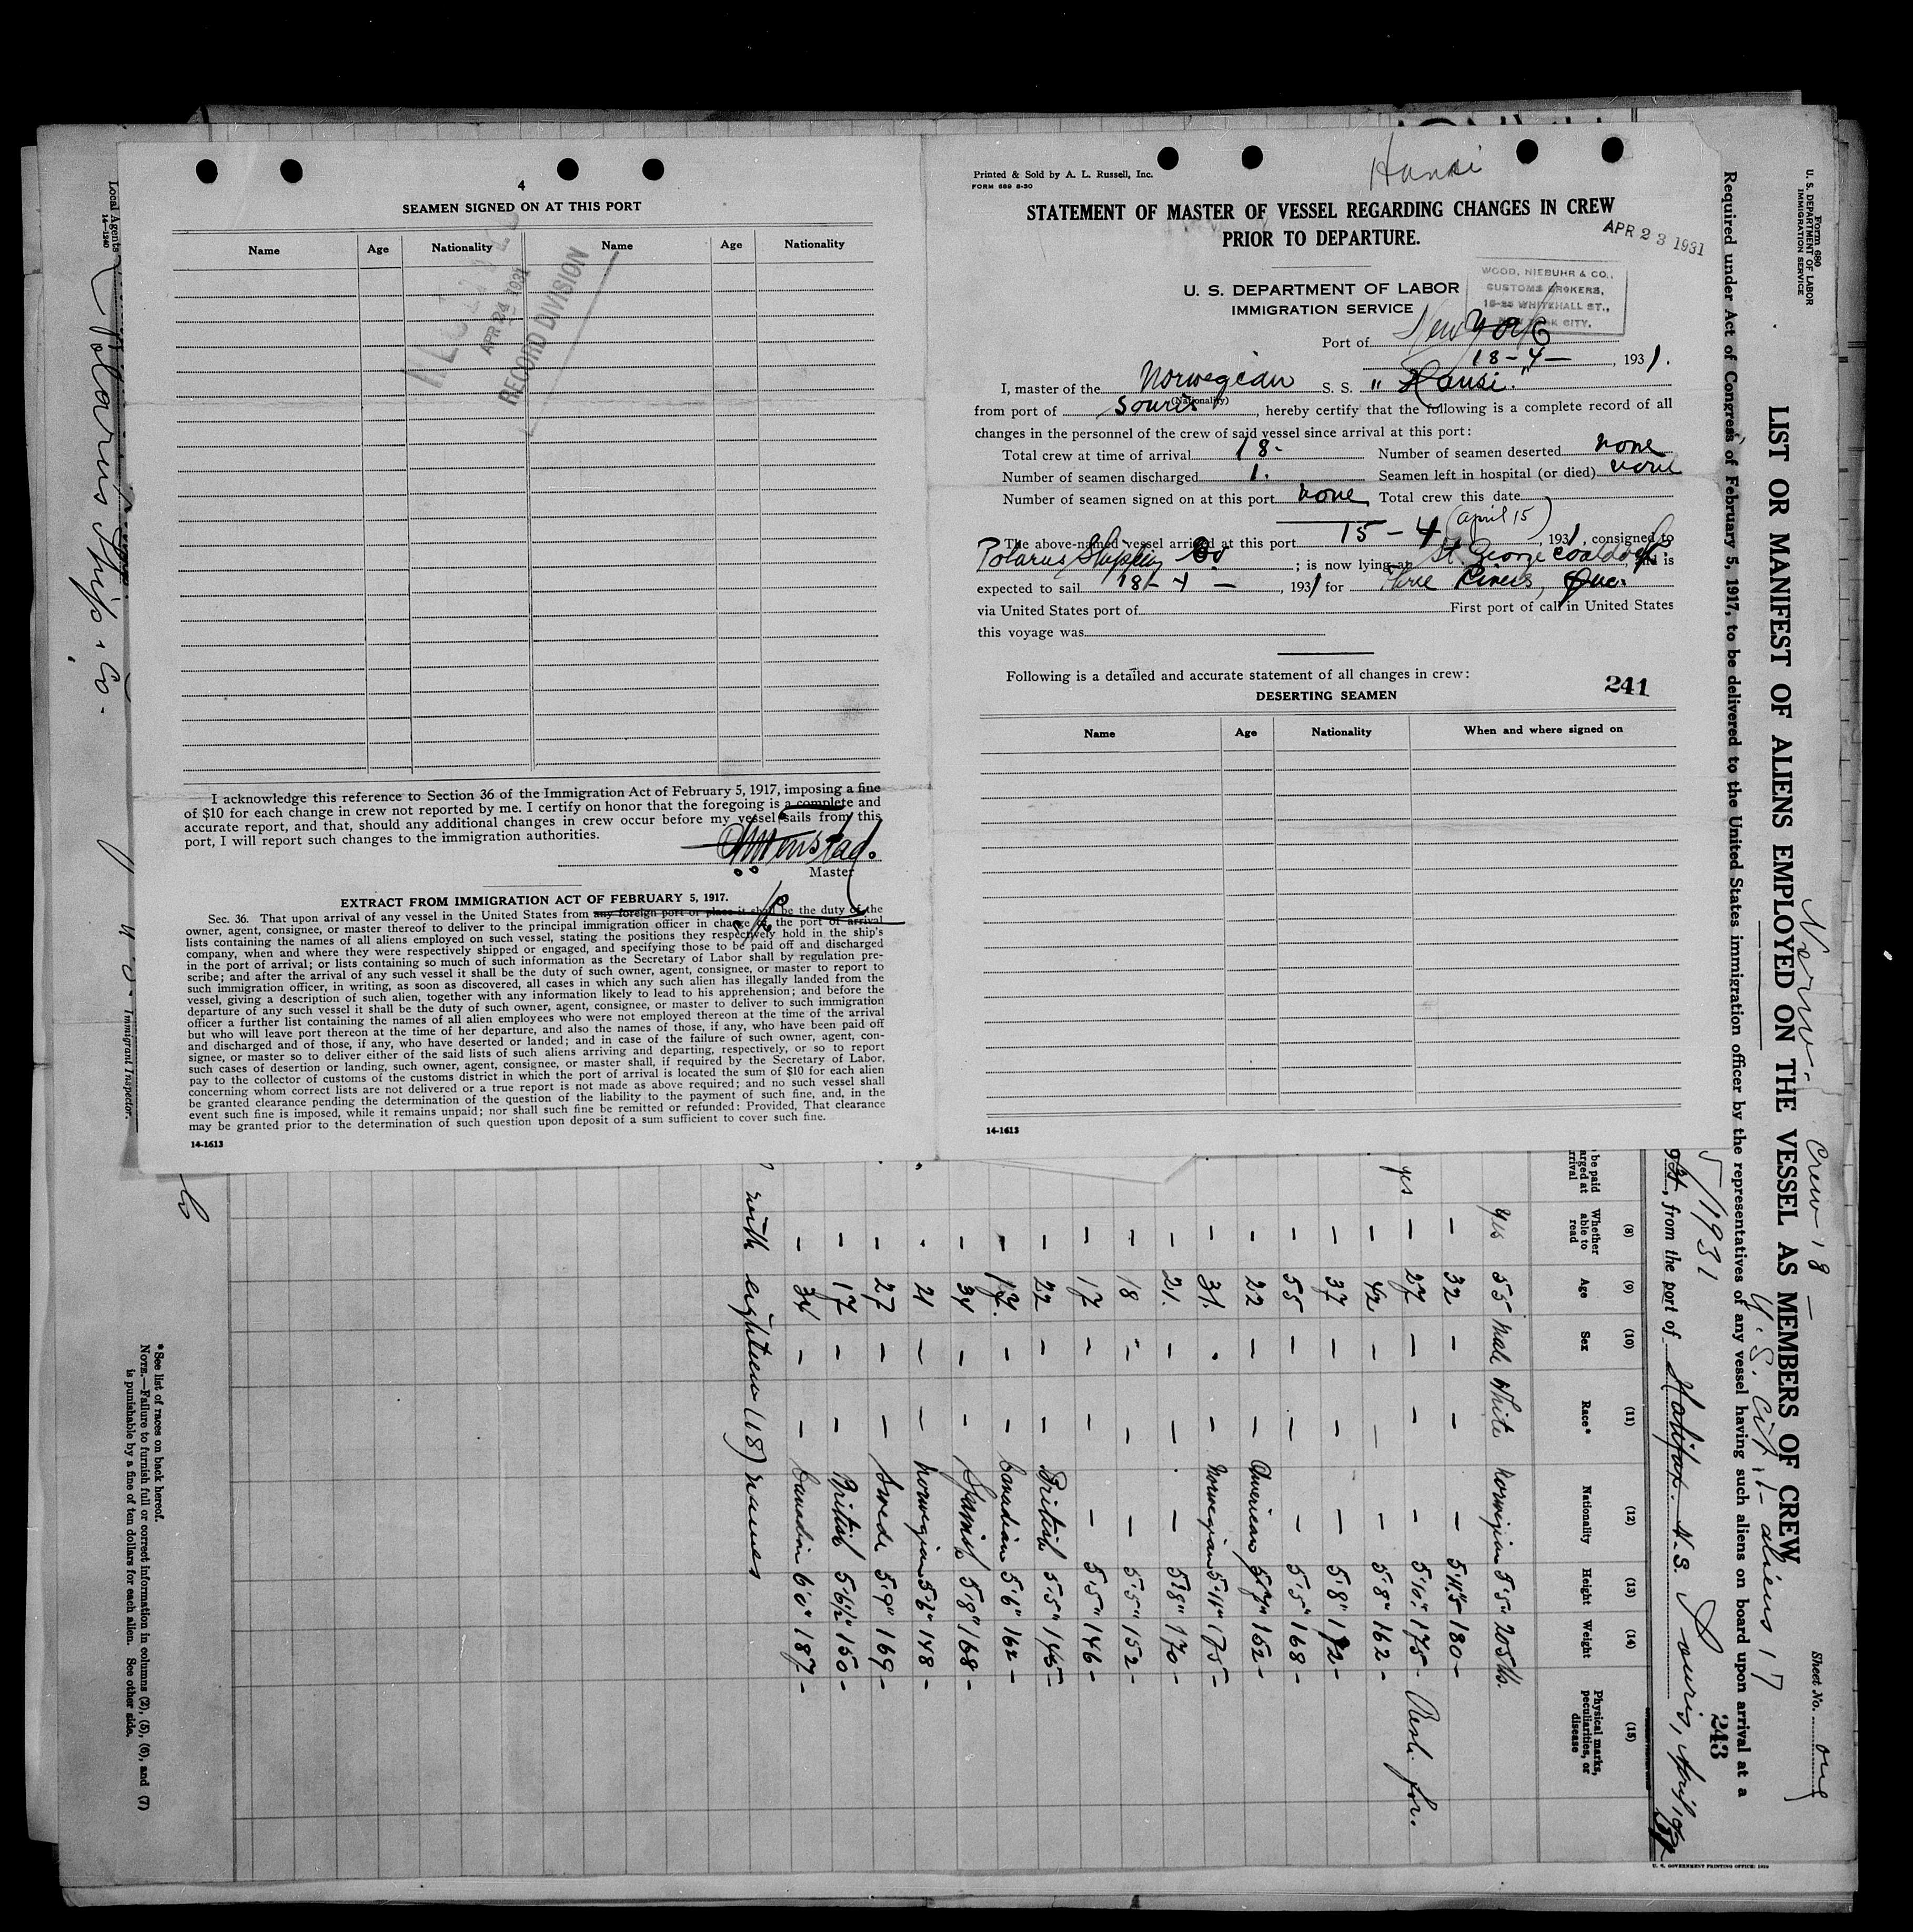 4
SEAMEN SIGNED ON AT THIS PORT
Name Age Nationality Name Age Nationality
APR 24 1931
RECORD DIVISION
I acknowledge this reference to Section 36 of the Immigration Act of February 5, 1917, imposing a fine
of $10 for each change in crew not reported by me. I certify on honor that the foregoing is a complete and
accurate report, and that, should any additional changes in crew occur before my vessel sails from this
port, I will report such changes to the immigration authorities.
Master
EXTRACT FROM IMMIGRATION ACT OF FEBRUARY 5, 1917.
Sec. 36. That upon arrival of any vessel in the United States from any foreign port or place it shall be the duty of the
owner, agent, consignee, or master thereof to deliver to the principal immigration officer in charge of the port of arrival
lists containing the names of all aliens employed on such vessel, stating the positions they respectively hold in the ship's
company, when and where they were respectively shipped or engaged, and specifying those to be paid off and discharged
in the port of arrival; or lists containing so much of such information as the Secretary of Labor shall by regulation pre-
scribe; and after the arrival of any such vessel it shall be the duty of such owner, agent, consignee, or master to report to
such immigration officer, in writing, as soon as discovered, all cases in which any such alien has illegally landed from the
vessel, giving a description of such alien, together with any information likely to lead to his apprehension; and before the
departure of any such vessel it shall be the duty of such owner, agent, consignee, or master to deliver to such immigration
officer a further list containing the names of all alien employees who were not employed thereon at the time of the arrival
but who will leave port thereon at the time of her departure, and also the names of those, if any, who have been paid off
and discharged and of those, if any, who have deserted or landed; and in case of the failure of such owner, agent, con-
signee, or master so to deliver either of the said lists of such aliens arriving and departing, respectively, or so to report
such cases of desertion or landing, such owner, agent, consignee, or master shall, if required by the Secretary of Labor,
pay to the collector of customs of the customs district in which the port of arrival is located the sum of $10 for each alien
concerning whom correct lists are not delivered or a true report is not made as above required; and no such vessel shall
be granted clearance pending the determination of the question of the liability to the payment of such fine, and, in the
event such fine is imposed, while it remains unpaid; nor shall such fine be remitted or refunded: Provided, That clearance
may be granted prior to the determination of such question upon deposit of a sum sufficient to cover such fine.
14-1613
Printed & Sold by A. L. Russell, Inc.
FORM 689 8-30
Hansi
STATEMENT OF MASTER OF VESSEL REGARDING CHANGES IN CREW
PRIOR TO DEPARTURE.
APR 23 1931
U. S. DEPARTMENT OF LABOR
IMMIGRATION SERVICE
WOOD, NIEBUHR & CO.,
CUSTOMS BROKERS,
WHITEHALL ST.,
NEW YORK CITY.
Port of New York
18-4-, 1931.
I, master of the Norwegian S. S. "Hansi."
(Nationality)
from port of Souris, hereby certify that the following is a complete record of all
changes in the personnel of the crew of said vessel since arrival at this port:
Total crew at time of arrival 18- Number of seamen deserted none
Number of seamen discharged 1. Seamen left in hospital (or died) none
Number of seamen signed on at this port none Total crew this date
The above-named vessel arrived at this port 15-4 (April 15), 1931, consigned to
Polarus Shipping Co; is now lying at St. George coaldock. and is
expected to sail 18-4-, 1931 for Three Rivers, Que.
via United States port of First port of call in United States
this voyage was
Following is a detailed and accurate statement of all changes in crew:
241
DESERTING SEAMEN
Name Age Nationality When and where signed on
14-1613
Form 680
U. S. DEPARTMENT OF LABOR
IMMIGRATION SERVICE
Sheet No. one
Crew 18 -
U.S. Cit. 1- aliens 17
LIST OR MANIFEST OF ALIENS EMPLOYED ON THE VESSEL AS MEMBERS OF CREW
Required under Act of Congress of February 5, 1917, to be delivered to the United States immigration officer by the representatives of any vessel having such aliens on board upon arrival at a
243
5/1931
, from the port of Halifax. N.S. Souris, April
U. S. GOVERNMENT PRINTING OFFICE
(8) (9) (10) (11) (12) (13) (14) (15)
Whether able to read Age Sex Race* Nationality Height Weight Physical marks, peculiarities, or disease
yes 55 male white norwegian 5'5" 205 lbs.
- 32 - - 5'11"5 180-
yes - 27 - - - 5'10" 175-
- 42 - - - 5'8" 162-
- 37 - - - 5'8" 172-
- 55 - - - 5'5" 168-
- 22 - - American 5'7" 152-
- 31. - - norwegian 5'11" 175-
- 21. - - - 5'8" 170-
- 18 - - - 5'5" 152-
- 17 - - - 5'5" 146-
- 22 - - British 5'5" 145-
- 17. - - Canadian 5'6" 162-
- 34 - - Spanish 5'8" 168-
- 21 - - norwegian 5'6" 148-
- 27 - - Swede 5'9" 169-
- 17 - - British 5'6½" 150-
- 34 - - Canadian 6'0" 187-
with eighteen (18) names
*See list of races on back hereof.
NOTE.—Failure to furnish full or correct information in columns (2), (5), (6), and (7)
is punishable by a fine of ten dollars for each alien. See other side.
Local Agents
14-1240
Polarus Ship. & Co-
Immigrant Inspector.